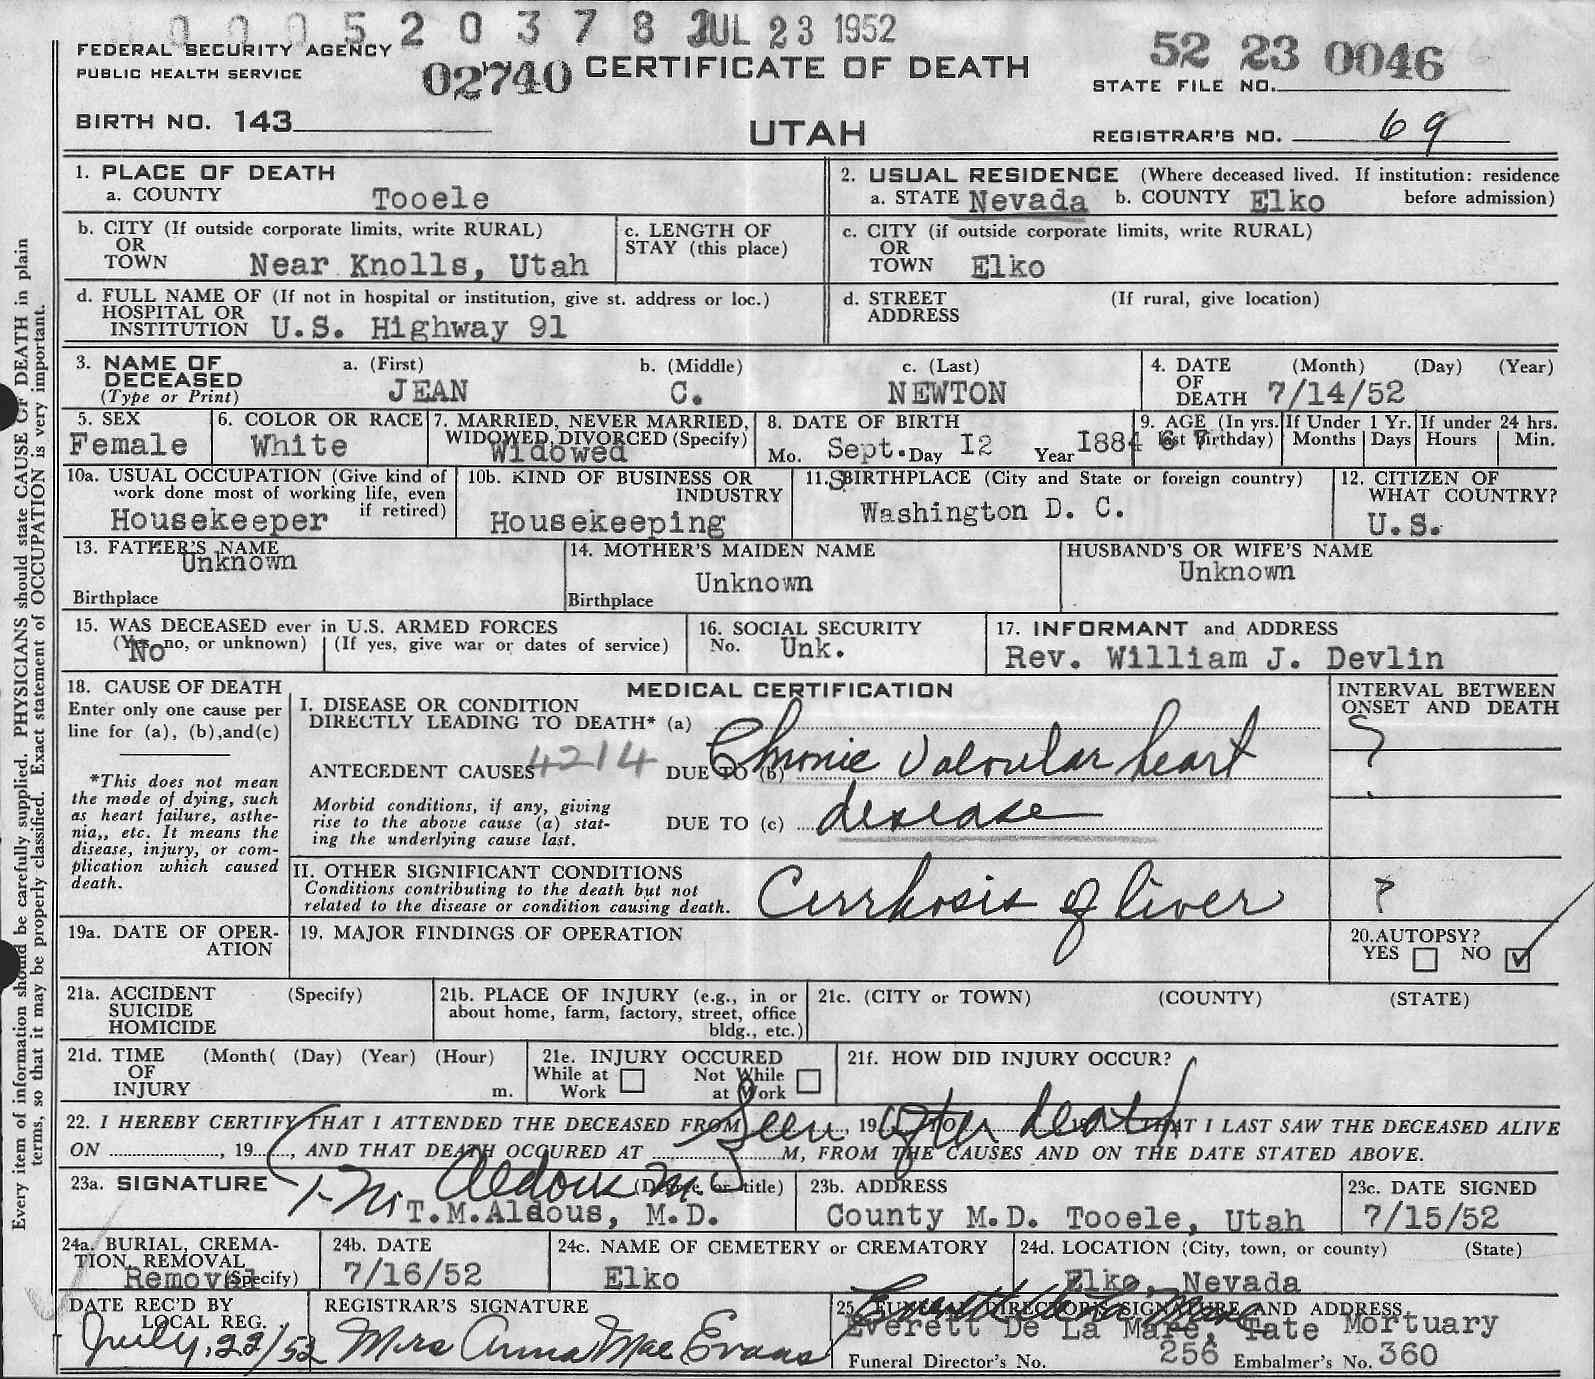 00052037 8 JUL 23 1952
FEDERAL SECURITY AGENCY
PUBLIC HEALTH SERVICE
02740 CERTIFICATE OF DEATH
52 23 0046
STATE FILE NO.
BIRTH NO. 143
UTAH
REGISTRAR'S NO. 69
1. PLACE OF DEATH
a. COUNTY Tooele
2. USUAL RESIDENCE (Where deceased lived. If institution: residence before admission)
a. STATE Nevada b. COUNTY Elko
b. CITY (If outside corporate limits, write RURAL)
OR
TOWN Near Knolls, Utah
c. LENGTH OF
STAY (this place)
c. CITY (if outside corporate limits, write RURAL)
OR
TOWN Elko
d. FULL NAME OF (If not in hospital or institution, give st. address or loc.)
HOSPITAL OR
INSTITUTION U.S. Highway 91
d. STREET (If rural, give location)
ADDRESS
3. NAME OF
DECEASED
(Type or Print)
a. (First) b. (Middle) c. (Last)
JEAN C. NEWTON
4. DATE (Month) (Day) (Year)
OF
DEATH 7/14/52
5. SEX
Female
6. COLOR OR RACE
White
7. MARRIED, NEVER MARRIED,
WIDOWED, DIVORCED (Specify)
Widowed
8. DATE OF BIRTH
Mo. Sept. Day I2 Year I884
9. AGE (In yrs. last Birthday) 67
If Under 1 Yr.
Months Days
If under 24 hrs.
Hours Min.
10a. USUAL OCCUPATION (Give kind of
work done most of working life, even
if retired)
Housekeeper
10b. KIND OF BUSINESS OR
INDUSTRY
Housekeeping
11. BIRTHPLACE (City and State or foreign country)
Washington D. C.
12. CITIZEN OF
WHAT COUNTRY?
U.S.
13. FATHER'S NAME
Unknown
Birthplace
14. MOTHER'S MAIDEN NAME
Unknown
Birthplace
HUSBAND'S OR WIFE'S NAME
Unknown
15. WAS DECEASED ever in U.S. ARMED FORCES
(Yes, no, or unknown) (If yes, give war or dates of service)
No
16. SOCIAL SECURITY
No. Unk.
17. INFORMANT and ADDRESS
Rev. William J. Devlin
18. CAUSE OF DEATH
Enter only one cause per
line for (a), (b), and(c)
*This does not mean
the mode of dying, such
as heart failure, asthe-
nia,, etc. It means the
disease, injury, or com-
plication which caused
death.
MEDICAL CERTIFICATION
I. DISEASE OR CONDITION
DIRECTLY LEADING TO DEATH* (a)
ANTECEDENT CAUSES 4214 DUE TO (b) Chronic Valvular heart
Morbid conditions, if any, giving
rise to the above cause (a) stat-
ing the underlying cause last.
DUE TO (c) desease
INTERVAL BETWEEN
ONSET AND DEATH
?
II. OTHER SIGNIFICANT CONDITIONS
Conditions contributing to the death but not
related to the disease or condition causing death.
Cirrhosis of liver
?
19a. DATE OF OPER-
ATION
19. MAJOR FINDINGS OF OPERATION
20.AUTOPSY?
YES NO ✓
21a. ACCIDENT (Specify)
SUICIDE
HOMICIDE
21b. PLACE OF INJURY (e.g., in or
about home, farm, factory, street, office
bldg., etc.)
21c. (CITY or TOWN) (COUNTY) (STATE)
21d. TIME (Month( (Day) (Year) (Hour)
OF
INJURY m.
21e. INJURY OCCURED
While at Work Not While at Work
21f. HOW DID INJURY OCCUR?
22. I HEREBY CERTIFY THAT I ATTENDED THE DECEASED FROM Seen, 19 after TO death THAT I LAST SAW THE DECEASED ALIVE
ON , 19 , AND THAT DEATH OCCURED AT M, FROM THE CAUSES AND ON THE DATE STATED ABOVE.
23a. SIGNATURE T M Aldous M D (Degree or title)
T.M.Aldous, M.D.
23b. ADDRESS
County M.D. Tooele, Utah
23c. DATE SIGNED
7/15/52
24a. BURIAL, CREMA-
TION, REMOVAL
Removal (Specify)
24b. DATE
7/16/52
24c. NAME OF CEMETERY or CREMATORY
Elko
24d. LOCATION (City, town, or county) (State)
Elko, Nevada
DATE REC'D BY
LOCAL REG.
July, 22/52
REGISTRAR'S SIGNATURE
Mrs Anna Mae Evans
25. FUNERAL DIRECTOR'S SIGNATURE AND ADDRESS
Everett De La Mare
Everett De La Mare, Tate Mortuary
Funeral Director's No. 256 Embalmer's No. 360
Every item of information should be carefully supplied. PHYSICIANS should state CAUSE OF DEATH in plain
terms, so that it may be properly classified. Exact statement of OCCUPATION is very important.